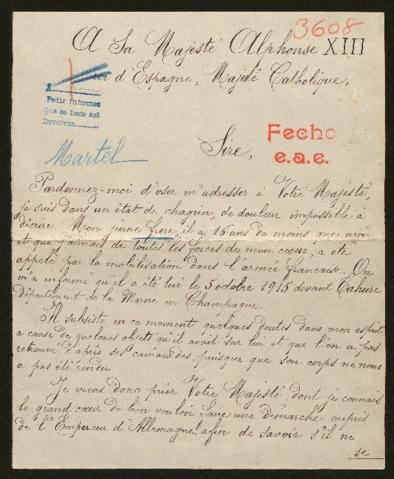 3608
A Sa Majesté Alphonse XIII
roi d'Espagne, Majesté Catholique.
Pedir informes
que se hace así
Devolver.
Martel
Fecho
e.a.e.
Sire,
Pardonnez-moi d'oser m'adresser à Votre Majesté,
je suis dans un état de chagrin, de douleur impossible à
décrire. Mon jeune frère, il a 15 ans de moins que moi
et que j'aimais de toutes les forces de mon cœur, a été
appelé par la mobilisation dans l'armée française. On
m'a informé qu'il a été tué le 5 octobre 1915 devant Tahure
Département de la Marne en Champagne.
Il subsiste en ce moment quelques doutes dans mon esprit
a cause de quelques objets qu'il avait sur lui et que l'on a pas
retrouvé, d'après ses camarades, puisque que son corps ne nous
a pas été rendu
Je viens donc prier Votre Majesté dont je connais
le grand cœur de bien vouloir faire une démarche auprès
de l'Empereur d'Allemagne! afin de savoir s'il ne
se